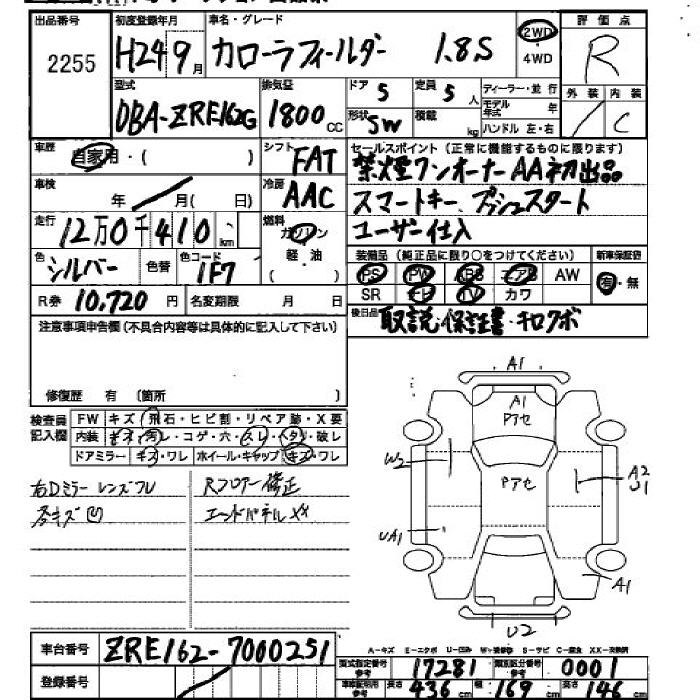 出品番号 初度登録年月 車名・グレード 評価点
2255 H24 9月 カローラフィールダー 1.8S 2WD・4WD R
型式 排気量 ドア 5 定員 5人 ディーラー・並行 外装 内装
DBA-ZRE162G 1800cc 形状 SW 積載 kg モデル年式 年 ハンドル 左・右 / C
車歴 自家用・( ) シフト FAT セールスポイント (正常に機能するものに限ります)
禁煙ワンオーナーAA初出品
車検 年 月( 日) 冷房 AAC スマートキー、プッシュスタート
走行 12万0千410km 燃料 ガソリン 軽・油 ユーザー仕入
色 シルバー 色替 色コード 1F7 装備品 (純正品に限り○をつけてください) 新車保証書
PS PW ABS エアB AW 有・無
R券 10,720円 名変期限 月 日 SR ナビ TV カワ
注意事項申告欄 (不具合内容等は具体的に記入して下さい) 後日品 取説・保証書・キロクボ
修復歴 有 (箇所 )
検査員記入欄 FW キズ・飛石・ヒビ割・リペア跡・X要
内装 キズ・汚レ・コゲ・穴・スレ・ヘタリ・破レ
ドアミラー キズ・ワレ ホイール・キャップ キズ・ワレ
右Dミラー レンズワレ Rフロアー 修正
各キズ凹 エンドパネルXX
A1
A1
Pアセ
W2 Pアセ A2
U1
UA1
A1
U2
A-キズ E-エクボ U-凹み W-補修跡 S-サビ C-腐食 XX-交換済
車台番号 ZRE162-7000251
型式指定番号 参考 17281 類別区分番号 参考 0001
登録番号
車体証明用 参考 長さ 436cm 幅 169cm 高さ 146cm